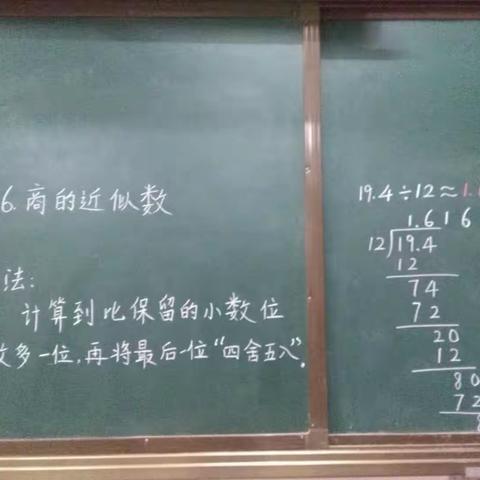 6.高的近似数
法:
计算到比保留的小数位
数多一位,再将最后一位“四舍五入”。
19.4÷12≈1.
1.616
12)19.4
12
74
72
20
12
80
72
8